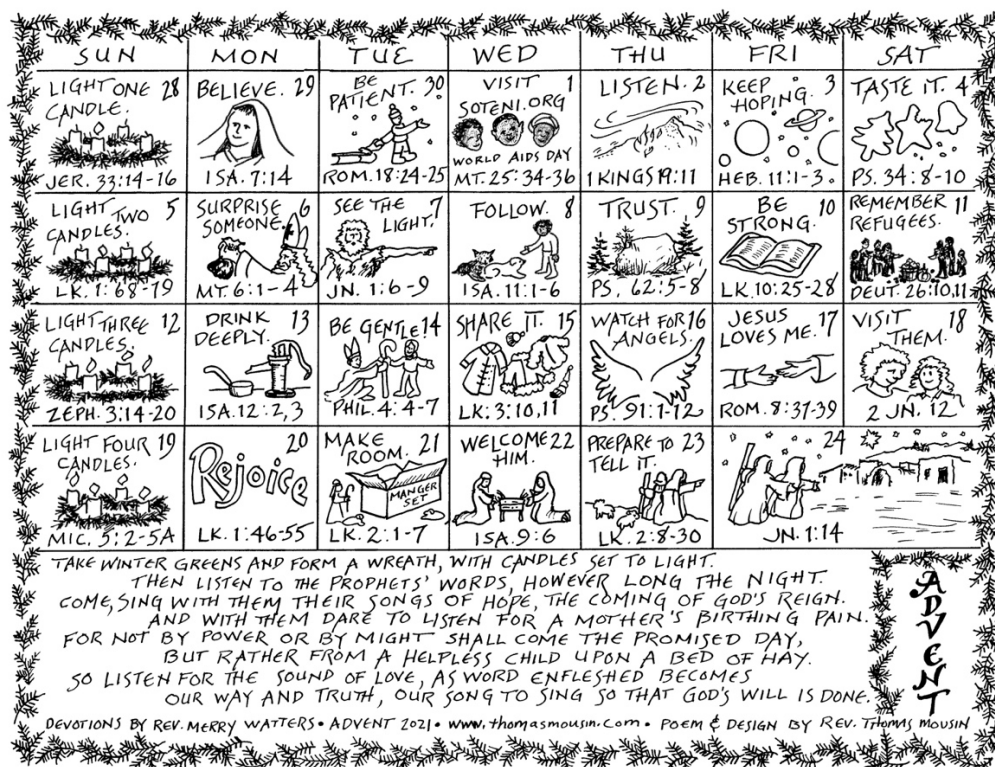 SUN MON TUE WED THU FRI SAT
LIGHT ONE 28
CANDLE.
JER. 33:14-16
BELIEVE. 29
ISA. 7:14
BE 30
PATIENT.
ROM. 18:24-25
VISIT 1
SOTENI.ORG
WORLD AIDS DAY
MT. 25:34-36
LISTEN. 2
1 KINGS 19:11
KEEP 3
HOPING.
HEB. 11:1-3.
TASTE IT. 4
PS. 34:8-10
LIGHT 5
TWO
CANDLES.
LK. 1:68-79
SURPRISE 6
SOMEONE.
MT. 6:1-4
SEE THE 7
LIGHT.
JN. 1:6-9
FOLLOW. 8
ISA. 11:1-6
TRUST. 9
PS. 62:5-8
BE 10
STRONG.
LK. 10:25-28
REMEMBER 11
REFUGEES.
DEUT. 26:10,11
LIGHT THREE 12
CANDLES.
ZEPH. 3:14-20
DRINK 13
DEEPLY.
ISA. 12:2,3
BE GENTLE 14
PHIL. 4:4-7
SHARE IT. 15
LK: 3:10,11
WATCH FOR 16
ANGELS.
PS. 91:1-12
JESUS 17
LOVES ME.
ROM. 8:37-39
VISIT 18
THEM.
2 JN. 12
LIGHT FOUR 19
CANDLES.
MIC. 5:2-5A
20
Rejoice
LK. 1:46-55
MAKE 21
ROOM.
MANGER
SET
LK. 2:1-7
WELCOME 22
HIM.
ISA. 9:6
PREPARE TO 23
TELL IT.
LK. 2:8-30
24
JN. 1:14
TAKE WINTER GREENS AND FORM A WREATH, WITH CANDLES SET TO LIGHT.
THEN LISTEN TO THE PROPHETS' WORDS, HOWEVER LONG THE NIGHT.
COME, SING WITH THEM THEIR SONGS OF HOPE, THE COMING OF GOD'S REIGN.
AND WITH THEM DARE TO LISTEN FOR A MOTHER'S BIRTHING PAIN.
FOR NOT BY POWER OR BY MIGHT SHALL COME THE PROMISED DAY,
BUT RATHER FROM A HELPLESS CHILD UPON A BED OF HAY.
SO LISTEN FOR THE SOUND OF LOVE, AS WORD ENFLESHED BECOMES
OUR WAY AND TRUTH, OUR SONG TO SING SO THAT GOD'S WILL IS DONE.
ADVENT
DEVOTIONS BY REV. MERRY WATTERS • ADVENT 2021 • www.thomasmousin.com • POEM & DESIGN BY REV. THOMAS MOUSIN